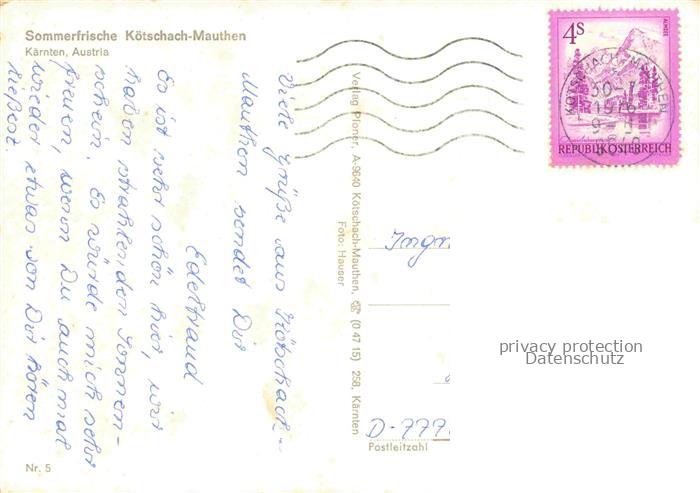 Sommerfrische Kötschach-Mauthen
Kärnten, Austria
Viele Grüße aus Kötschach-
Mauthen sendet Dir
Edeltraud
Es ist sehr schön hier, wir
haben strahlenden Sonnen-
schein. Es würde mich sehr
freuen, wenn Du auch mal
wieder etwas von Dir hören
ließest.
Nr. 5
Verlag Ploner, A-9640 Kötschach-Mauthen, ☎ (0 47 15) 258, Kärnten
Foto: Hauser
4S
ALMSEE
REPUBLIK ÖSTERREICH
KÖTSCHACH-MAUTHEN
1976
9640
Ingr
D-777
Postleitzahl
privacy protection
Datenschutz